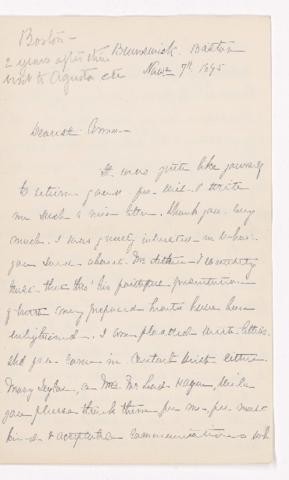 Boston -
2 years after their
visit to Augusta etc
Brunswick. Boston
Nov. 7th 1895
Dearest Anna -
It was quite like yourself
to return good for evil & write
me such a nice letter. Thank you very
much. I was greatly interested in what
you said about Mr. I earnestly
trust that thro' his presentation
of truth many prepared hearts have been
enlightened. I am
did you come in contact with either
Mary Taylor, or Mrs. Will
you please thank them for me, for most
kind & acceptable communications wh